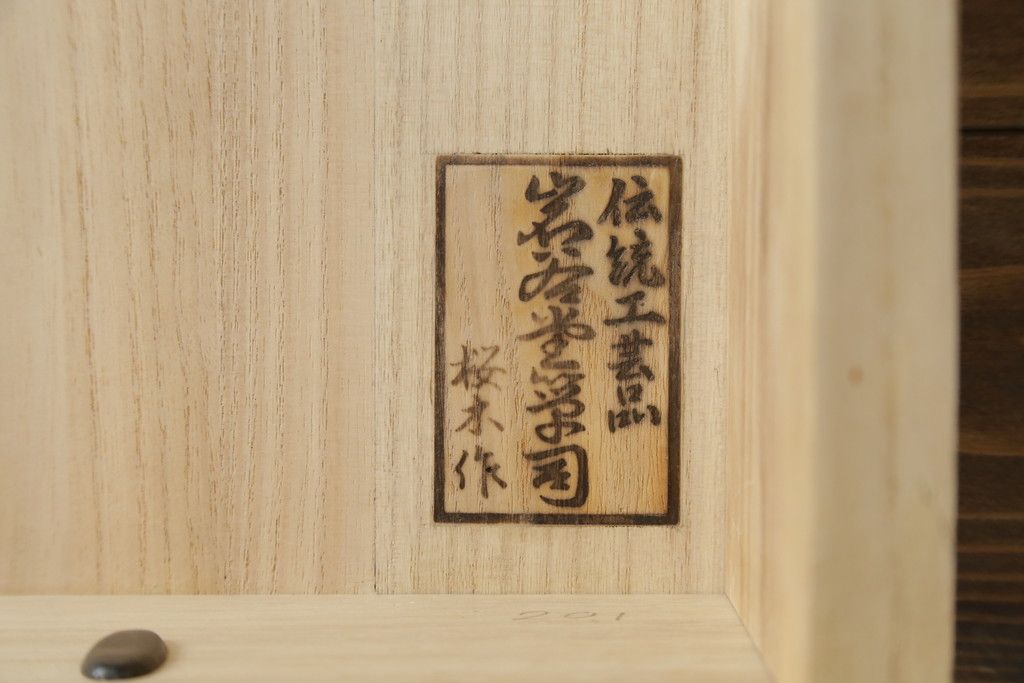 伝統工芸品
岩谷堂箪笥
桜木作
201